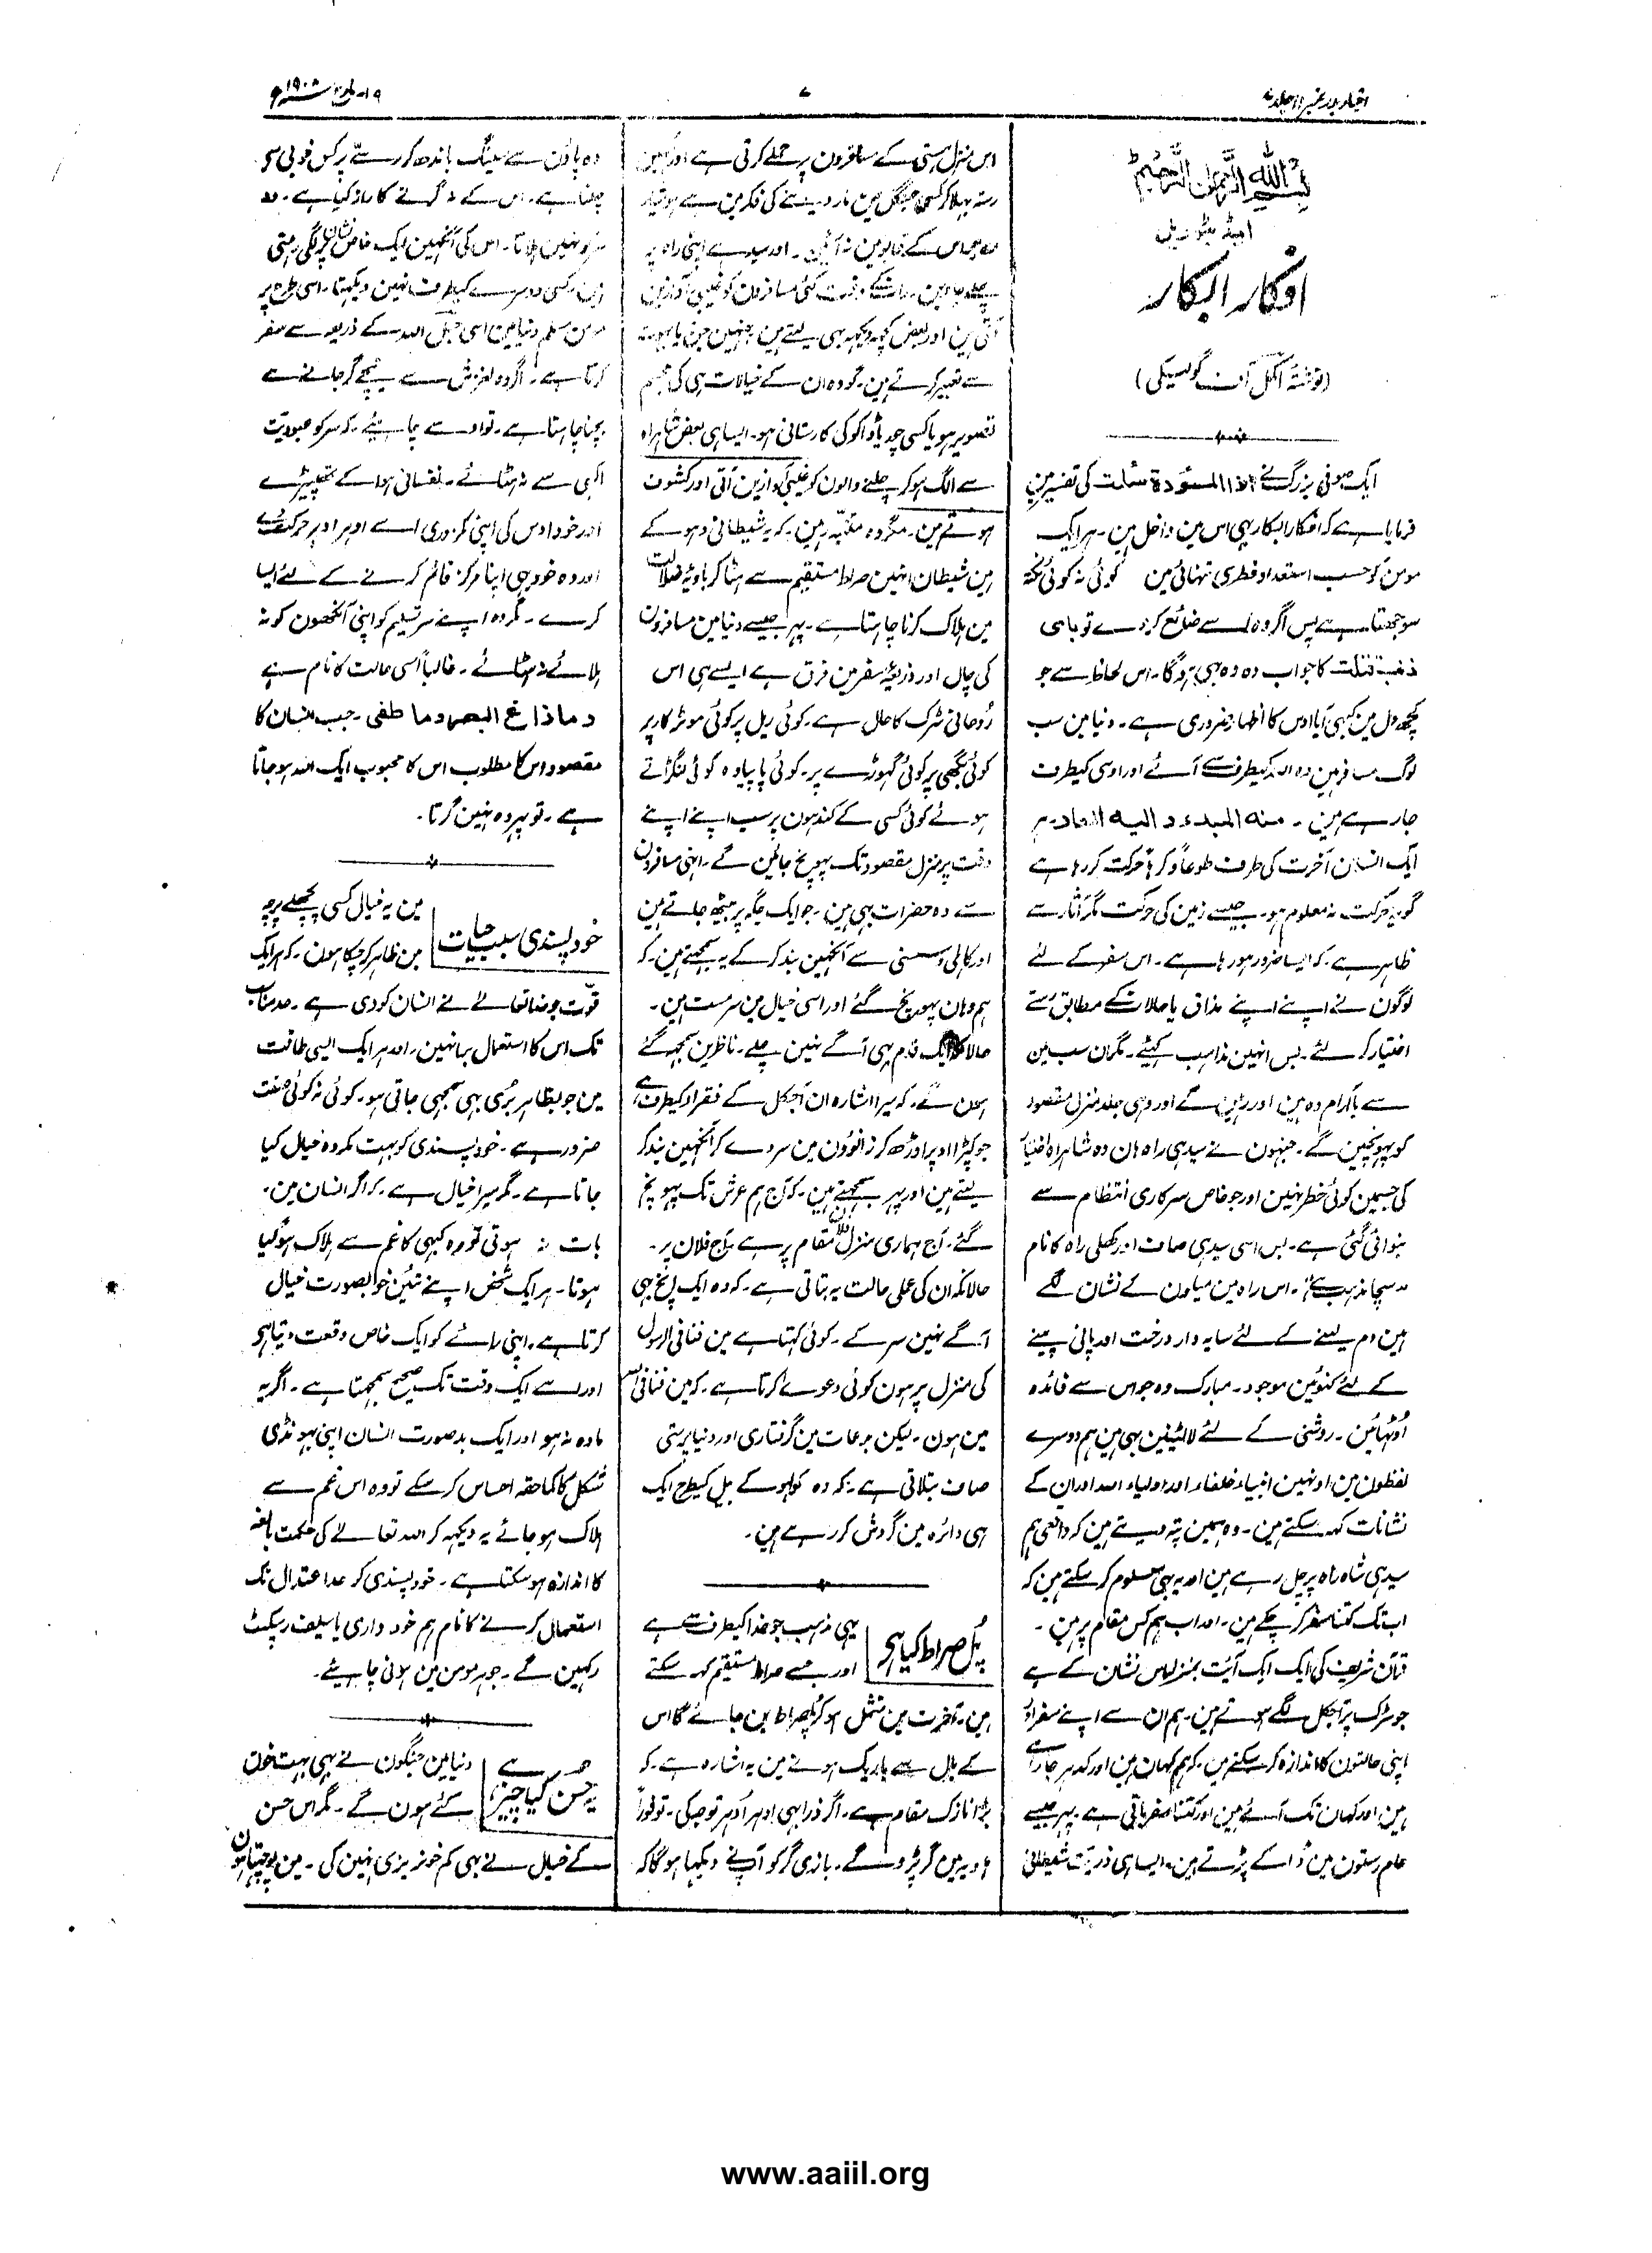 اخبار بدر نمبر ۱۱ جلد ۷
۷
۱۹ - مارچ سنہ ۱۹۰۸ء
بسم اللہ الرحمن الرحیم
ایڈیٹوریل
افکار ابکار
(نوشتۂ اکمل آف گولیکی)
ایک صوفی بزرگ نے اذا الموؤدۃ سئلت کی تفسیر مین
فرمایا ہے کہ افکار ابکار بہی اس مین داخل ہین - ہر ایک
مومن کو حسب استعداد فطری تنہائی مین کوئی نہ کوئی نکتہ
سوجھتا ہے پس اگر وہ اسے ضائع کر دے تو بای
ذنب قتلت کا جواب دہ وہ بہی ہوگا - اس لحاظ سے جو
کچھ دل مین کبہی آیا اوس کا اظہار ضروری ہے - دنیا مین سب
لوگ مسافر ہین وہ اللہ کیطرف سے آئے اور اوسی کیطرف
جا رہے ہین - منہ المبدء و الیہ المعاد - ہر
ایک انسان آخرت کی طرف طوعاً وکرہاً حرکت کر رہا ہے
گو یہ حرکت نہ معلوم ہو - جیسے زمین کی حرکت مگر آثار سے
ظاہر ہے - کہ ایسا ضرور ہو رہا ہے - اس سفر کے لئے
لوگون نے اپنے اپنے مذاق یا حالات کے مطابق رستے
اختیار کر لئے - بس انہین مذاہب کہیئے - مگر ان سب مین
سے باآرام وہ ہین اور رہین گے اور وہی جلد منزل مقصود
کو پہونچین گے - جنہون نے سیدہی راہ ہان وہ شاہراہ اختیار
کی جسمین کوئی خطر نہین اور جو خاص سرکاری انتظام سے
بنوائی گئی ہے - بس اسی سیدہی صاف اور کھلی راہ کا نام
"سچا مذہب ہے" - اس راہ مین میلون کے نشان لگے
ہین دم لینے کے لئے سایہ دار درخت اور پانی پینے
کے لئے کنوئین موجود - مبارک وہ جو اس سے فائدہ
اوٹھائین - روشنی کے لئے لالٹینین بہی ہین ہم دوسرے
لفظون مین اونہین انبیاء خلفاء اور اولیاء اللہ اور ان کے
نشانات کہہ سکتے ہین - وہ ہمین پتہ دیتے ہین کہ واقعی ہم
سیدہی شاہ راہ پر چل رہے ہین اور یہ بہی معلوم کر سکتے ہین کہ
ابتک کتنا سفر کر چکے ہین - اور اب ہم کس مقام پر ہین -
قرآن شریف کی ایک ایک آیت بمنزلہ اس نشان کے ہے
جو سڑک پر آجکل لگے ہوتے ہین - ہم ان سے اپنے سفر اور
اپنی حالتون کا اندازہ کر سکتے ہین - کہ ہم کہان ہین اور کدہر جا رہے
ہین اور کہان تک آئے ہین اور کتنا سفر باقی ہے - پہر جیسے
عام رستون مین ڈاکے پڑتے ہین - ایسا ہی ذریت شیطانی
اس منزل ہستی کے مسافرون پر حملے کرتی ہے اور انہین
رستہ بہلا کر کسی جنگل مین مار دینے کی فکر مین ہے
اس کے قابو مین نہ آئین - اور سیدہے اپنی راہ پر
چلے جائین - رات کے وقت کئی مسافرون کو غیبی آوازین
آتی ہین اور بعض کچہہ دیکہہ بہی لیتے ہین جنہین جن یا بہوت
سے تعبیر کرتے ہین - گو وہ ان کے خیالات ہی کی مجسم
تصویر ہو یا کسی چور یا ڈاکو کی کارستانی ہو - ایسا ہی بعض شاہراہ
سے الگ ہو کر چلنے والون کو غیبی آوازین آتی اور کشوف
ہوتے ہین - مگر وہ متنبہ رہین - کہ یہ شیطانی دہوکے
ہین شیطان انہین صراط مستقیم سے ہٹا کر بادیۂ ضلالت
مین ہلاک کرنا چاہتا ہے - پہر جیسے دنیا مین مسافرون
کی چال اور ذریعۂ سفر مین فرق ہے ایسے ہی اس
روحانی سڑک کا حال ہے - کوئی ریل پر کوئی موٹر کار پر
کوئی بگھی پر کوئی گہوڑے پر - کوئی پا پیادہ کوئی لنگڑاتے
ہوئے کوئی کسی کے کندہون پر سب اپنے اپنے
وقت پر منزل مقصود تک پہونچ جائین گے - انہی مسافرون
سے وہ حضرات بہی ہین - جو ایک جگہ پر بیٹھ جاتے ہین
اور کاہلی و سستی سے آنکہین بند کر کے یہ سمجہتے ہین - کہ
ہم وہان پہونچ گئے اور اسی خیال مین سرمست ہین -
حالانکہ ایک قدم بہی آگے نہین چلے - ناظرین سمجہہ گئے
ہون گے - کہ میرا اشارہ ان آجکل کے فقراء کیطرف ہے
جو کپڑا اوپر اوڑھ کر زانوؤن مین سر دے کر آنکہین بند کر
لیتے ہین اور پہر سمجہتے ہین - کہ آج ہم عرش تک پہونچ
گئے - آج ہماری منزل فلان مقام پر ہے - آج فلان پر -
حالانکہ ان کی عملی حالت یہ بتاتی ہے - کہ وہ ایک انچ بہی
آگے نہین سرکے - کوئی کہتا ہے مین فنا فی الرسول
کی منزل پر ہون کوئی دعوے کرتا ہے - کہ مین فنا فی اللہ
مین ہون - لیکن بدعات مین گرفتاری اور دنیا پرستی
صاف بتلاتی ہے - کہ وہ کولہو کے بیل کیطرح ایک
ہی دائرہ مین گردش کر رہے ہین -
پل صراط کیا ہے
یہی مذہب جو خدا کیطرف سے ہے
اور جسے صراط مستقیم کہہ سکتے
ہین - آخرت مین متمثل ہو کر پلصراط بن جائے گا اس
کے بال سے باریک ہونے مین یہ اشارہ ہے - کہ
بڑا نازک مقام ہے - اگر ذرا بہی ادہر اُدہر توجہ کی - تو فوراً
ہاویہ مین گر پڑو گے - بازی گر کو آپنے دیکہا ہوگا کہ
وہ پاؤن سے سینگ باندھ کر رستے پر کس خوبی سے
چلتا ہے - اس کے نہ گرنے کا راز کیا ہے - وہ
سر کو نہین ہلاتا - اس کی آنکہین ایک خاص نشان پر لگی رہتی
ہین - کسی دوسرے کیطرف نہین دیکہتا - اسی طرح پر
مومن مسلم دنیا مین اسی حبل اللہ کے ذریعہ سے سفر
کرتا ہے - اگر وہ لغزش سے نیچے گر جانے سے
بچنا چاہتا ہے - تو اوسے چاہئے - کہ سر کو عبودیت
الٰہی سے نہ ہٹائے - نفسانی ہوا کے تھپیڑے
اور خود اوس کی اپنی کمزوری اسے ادہر ادہر حرکت دے
اور وہ خود بہی اپنا مرکز قائم کرنے کے لئے ایسا
کرے - مگر وہ اپنے سر تسلیم کو اپنی آنکھون کو نہ
ہلائے نہ ہٹائے - غالباً اسی حالت کا نام ہے
وما زاغ البصر وما طغی - جب انسان کا
مقصود اس کا مطلوب اس کا محبوب ایک اللہ ہو جاتا
ہے - تو پہر وہ نہین گرتا -
خود پسندی سبب حیات
مین یہ خیال کسی پچھلے پرچہ
مین ظاہر کر چکا ہون - کہ ہر ایک
قوت جو خدا تعالے نے انسان کو دی ہے - حد مناسب
تک اس کا استعمال برا نہین - اور ہر ایک ایسی طاقت
مین جو بظاہر بُری بہی سمجہی جاتی ہو - کوئی نہ کوئی صفت
ضرور ہے - خود پسندی کو بہت مکروہ خیال کیا
جاتا ہے - مگر میرا خیال ہے - کہ اگر انسان مین
بات نہ ہوتی تو وہ کبہی کا غم سے ہلاک ہو گیا
ہوتا - ہر ایک شخص اپنے تئین خوبصورت خیال
کرتا ہے - اپنی رائے کو ایک خاص وقعت دیتا ہے
اور اسے ایک وقت تک صحیح سمجہتا ہے - اگر یہ
مادہ نہ ہو اور ایک بدصورت انسان اپنی بہونڈی
شکل کا کماحقہ احساس کر سکے تو وہ اس غم سے
ہلاک ہو جائے یہ دیکہہ کر اللہ تعالے کی حکمت بالغہ
کا اندازہ ہو سکتا ہے - خود پسندی کو حد اعتدال تک
استعمال کرنے کا نام ہم خود داری یا سیلف رسپکٹ
رکہین گے - جو ہر مومن مین ہونی چاہیئے -
یہ حسن کیا چیز ہے
دنیا مین جنگون نے بہی بہت خون
کئے ہون گے - مگر اس حسن
کے خیال نے بہی کم خونریزی نہین کی - مین پوچہتا ہون
www.aaiil.org